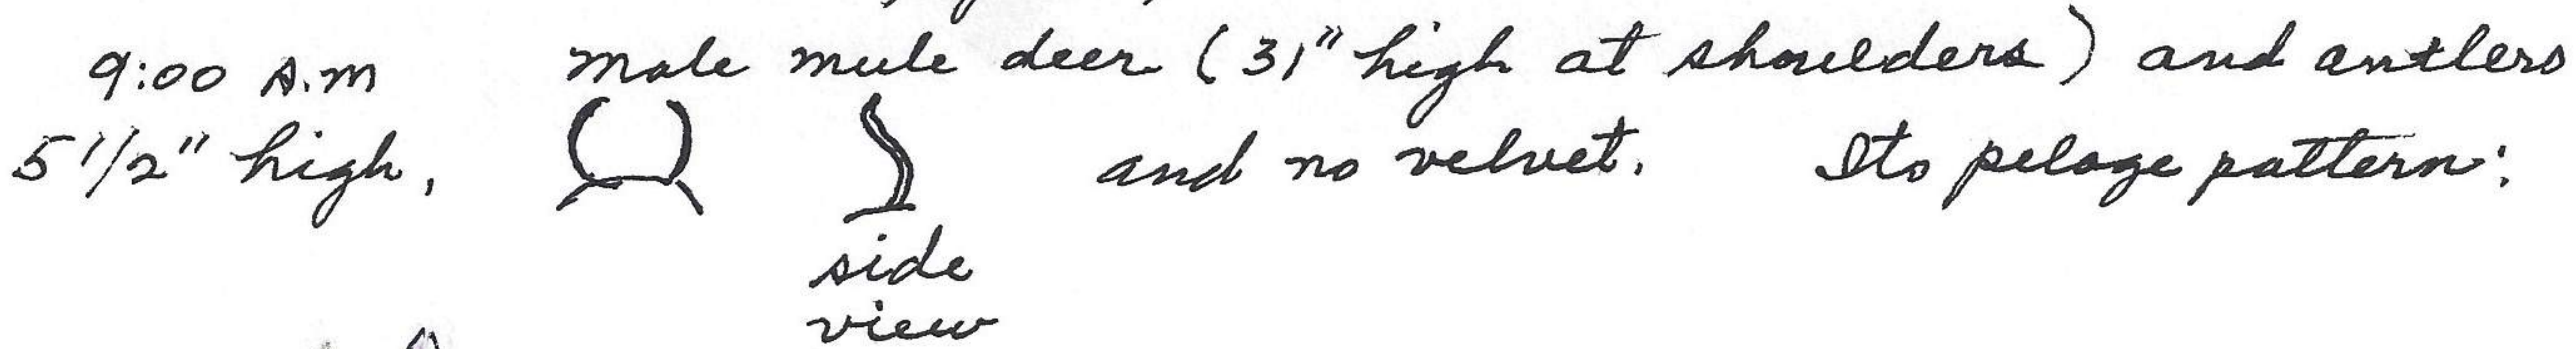 9:00 A.M male mule deer (31" high at shoulders) and antlers
5 1/2" high, and no velvet. Its pelage pattern:
side
view